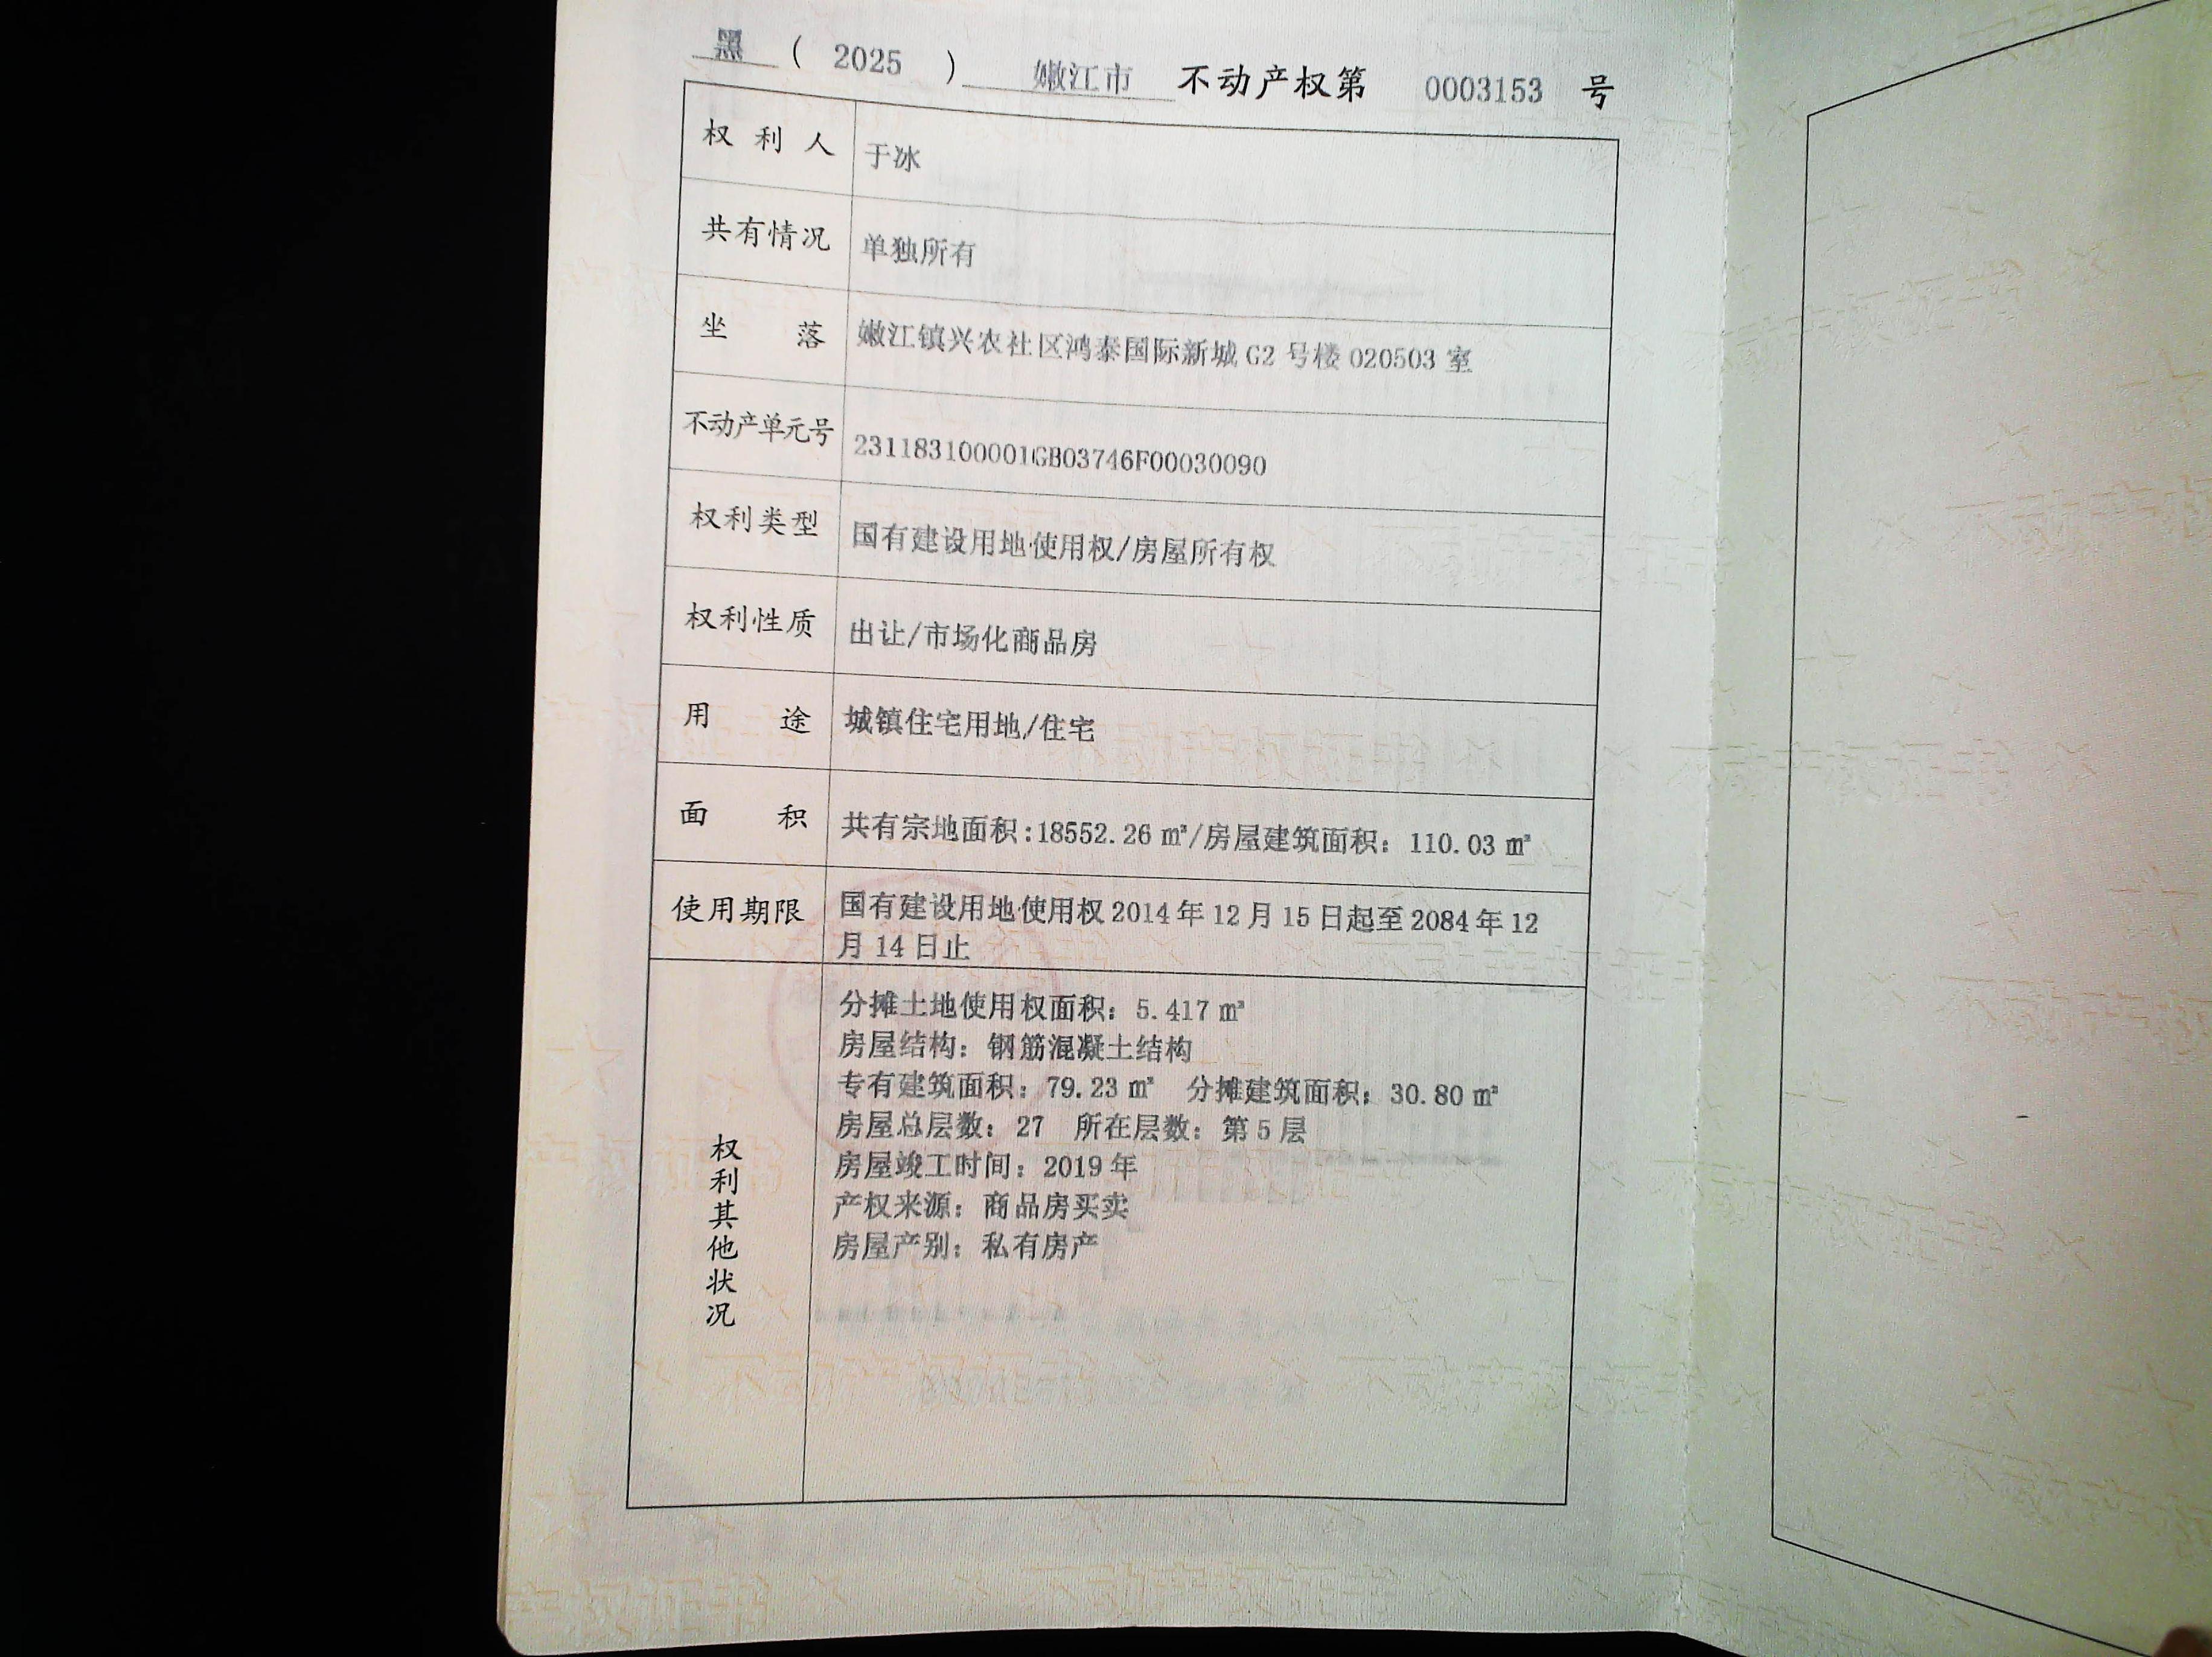 黑 ( 2025 ) 嫩江市 不动产权第 0003153 号
权利人 于冰
共有情况 单独所有
坐落 嫩江镇兴农社区鸿泰国际新城 G2 号楼 020503 室
不动产单元号 231183100001GB03746F00030090
权利类型 国有建设用地使用权/房屋所有权
权利性质 出让/市场化商品房
用途 城镇住宅用地/住宅
面积 共有宗地面积:18552.26 ㎡/房屋建筑面积: 110.03 ㎡
使用期限 国有建设用地使用权 2014 年 12 月 15 日起至 2084 年 12
月 14 日止
权利其他状况
分摊土地使用权面积: 5.417 ㎡
房屋结构: 钢筋混凝土结构
专有建筑面积: 79.23 ㎡ 分摊建筑面积: 30.80 ㎡
房屋总层数: 27 所在层数: 第 5 层
房屋竣工时间: 2019 年
产权来源: 商品房买卖
房屋产别: 私有房产